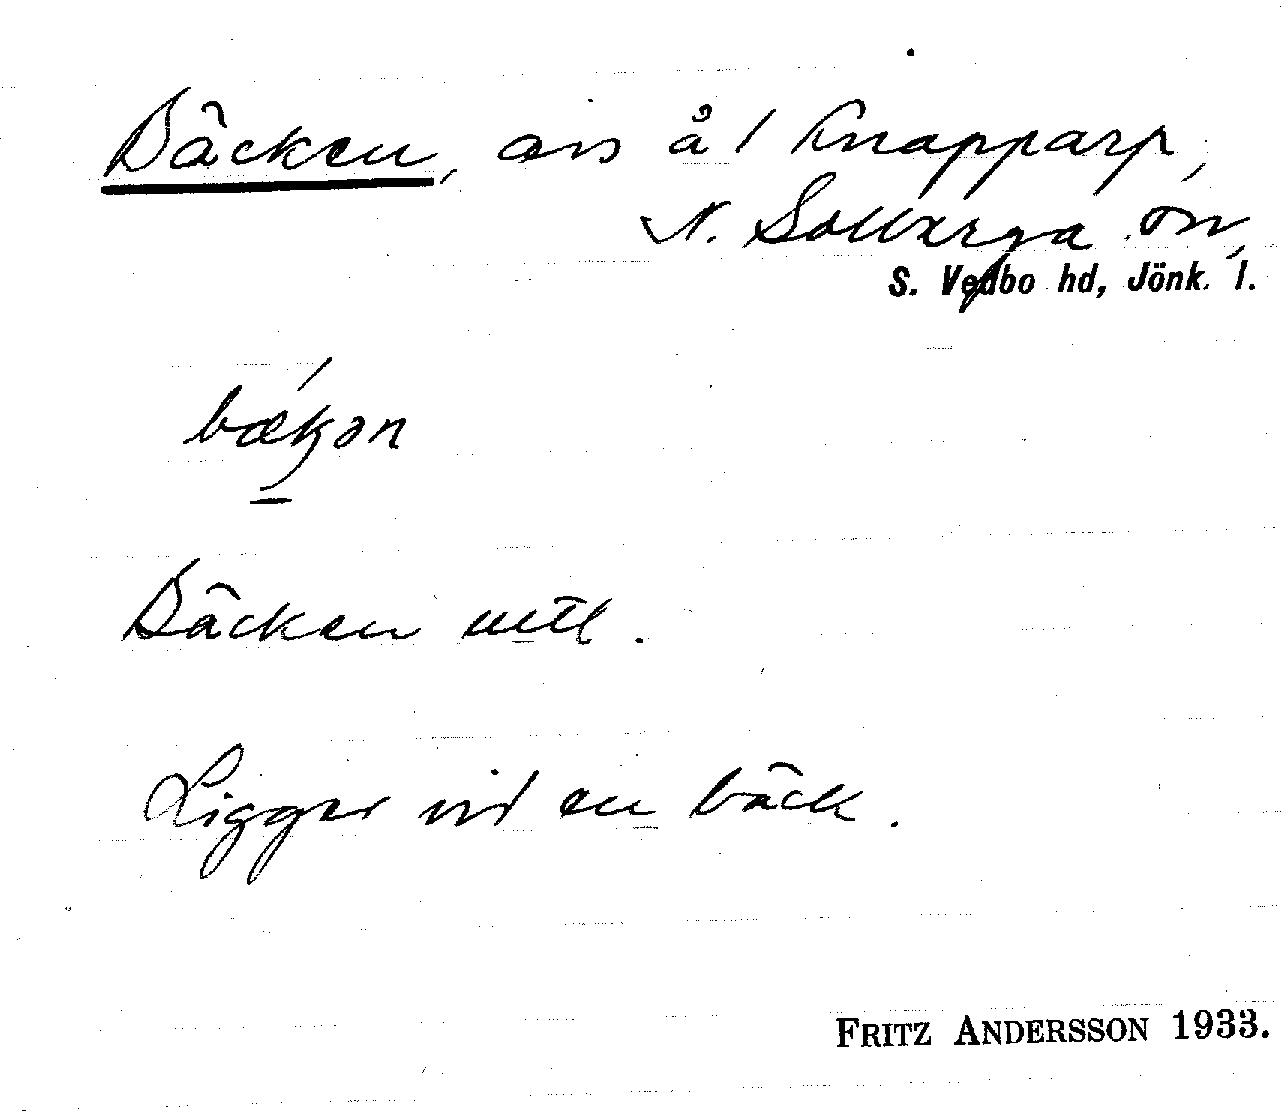 Bäcken, avs å / Knapparp,
N. Solberga sn,
S. Vedbo hd, Jönk. l.
bækən
Bäcken
Ligger vid en bäck.
FRITZ ANDERSSON 1933.